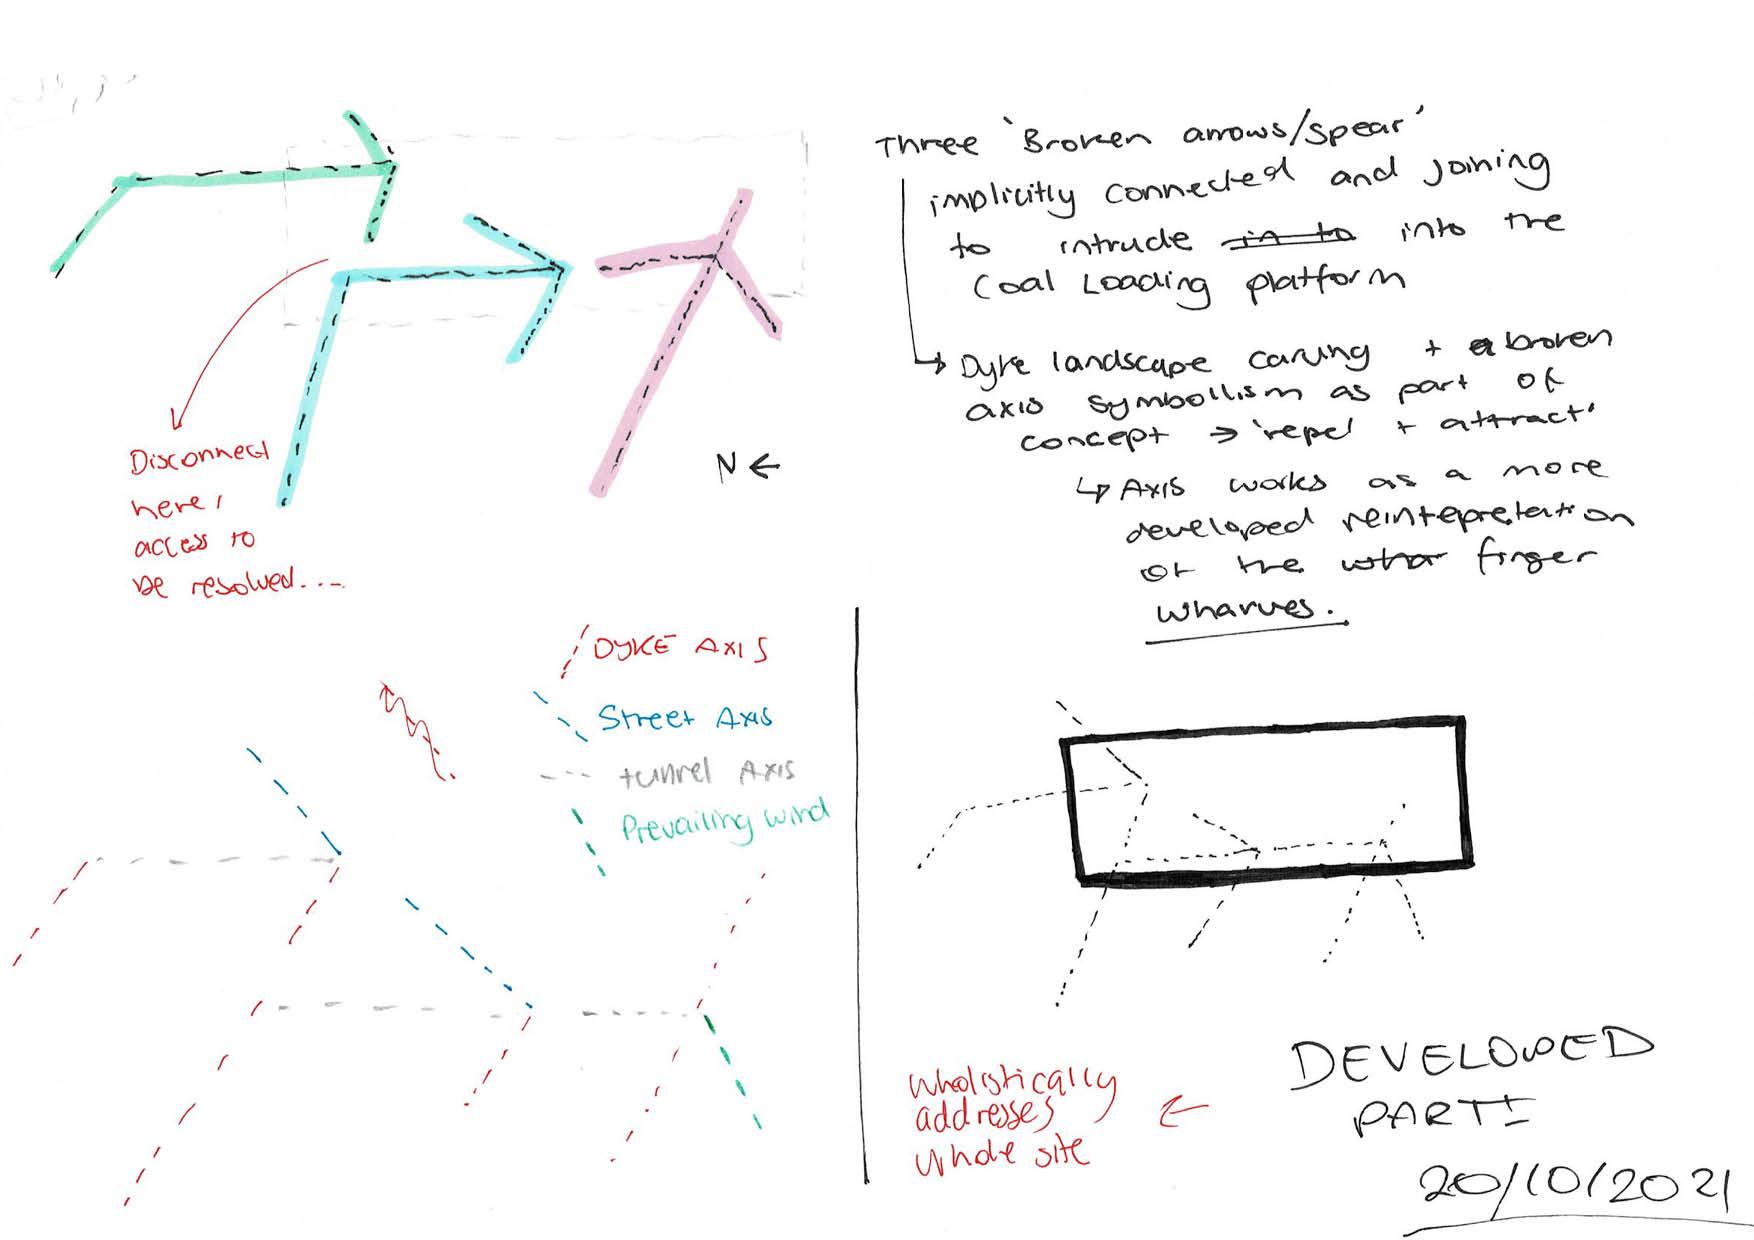 Three 'Broken arrows/spear'
implicitly connected and joining
to intrude in to into the
Coal Loading platform
Dyke landscape carving + a broken
axis symbollism as part of
concept → 'repel + attract'
↳ Axis works as a more
developed reintepretation
of the whar finger
wharves.
N ←
Disconnect
here,
access to
be resolved....
DYKE AXIS
Street Axis
tunnel Axis
Prevailing wind
wholistically
addresses
whole site
←
DEVELOPED
PARTI
20/10/2021